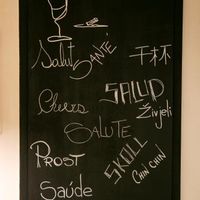 Salut
SANTÉ
干杯
SALUD
Cheers
Živjeli
SALUTE
PROST
SKÖLL
CHIN CHIN
Saúde